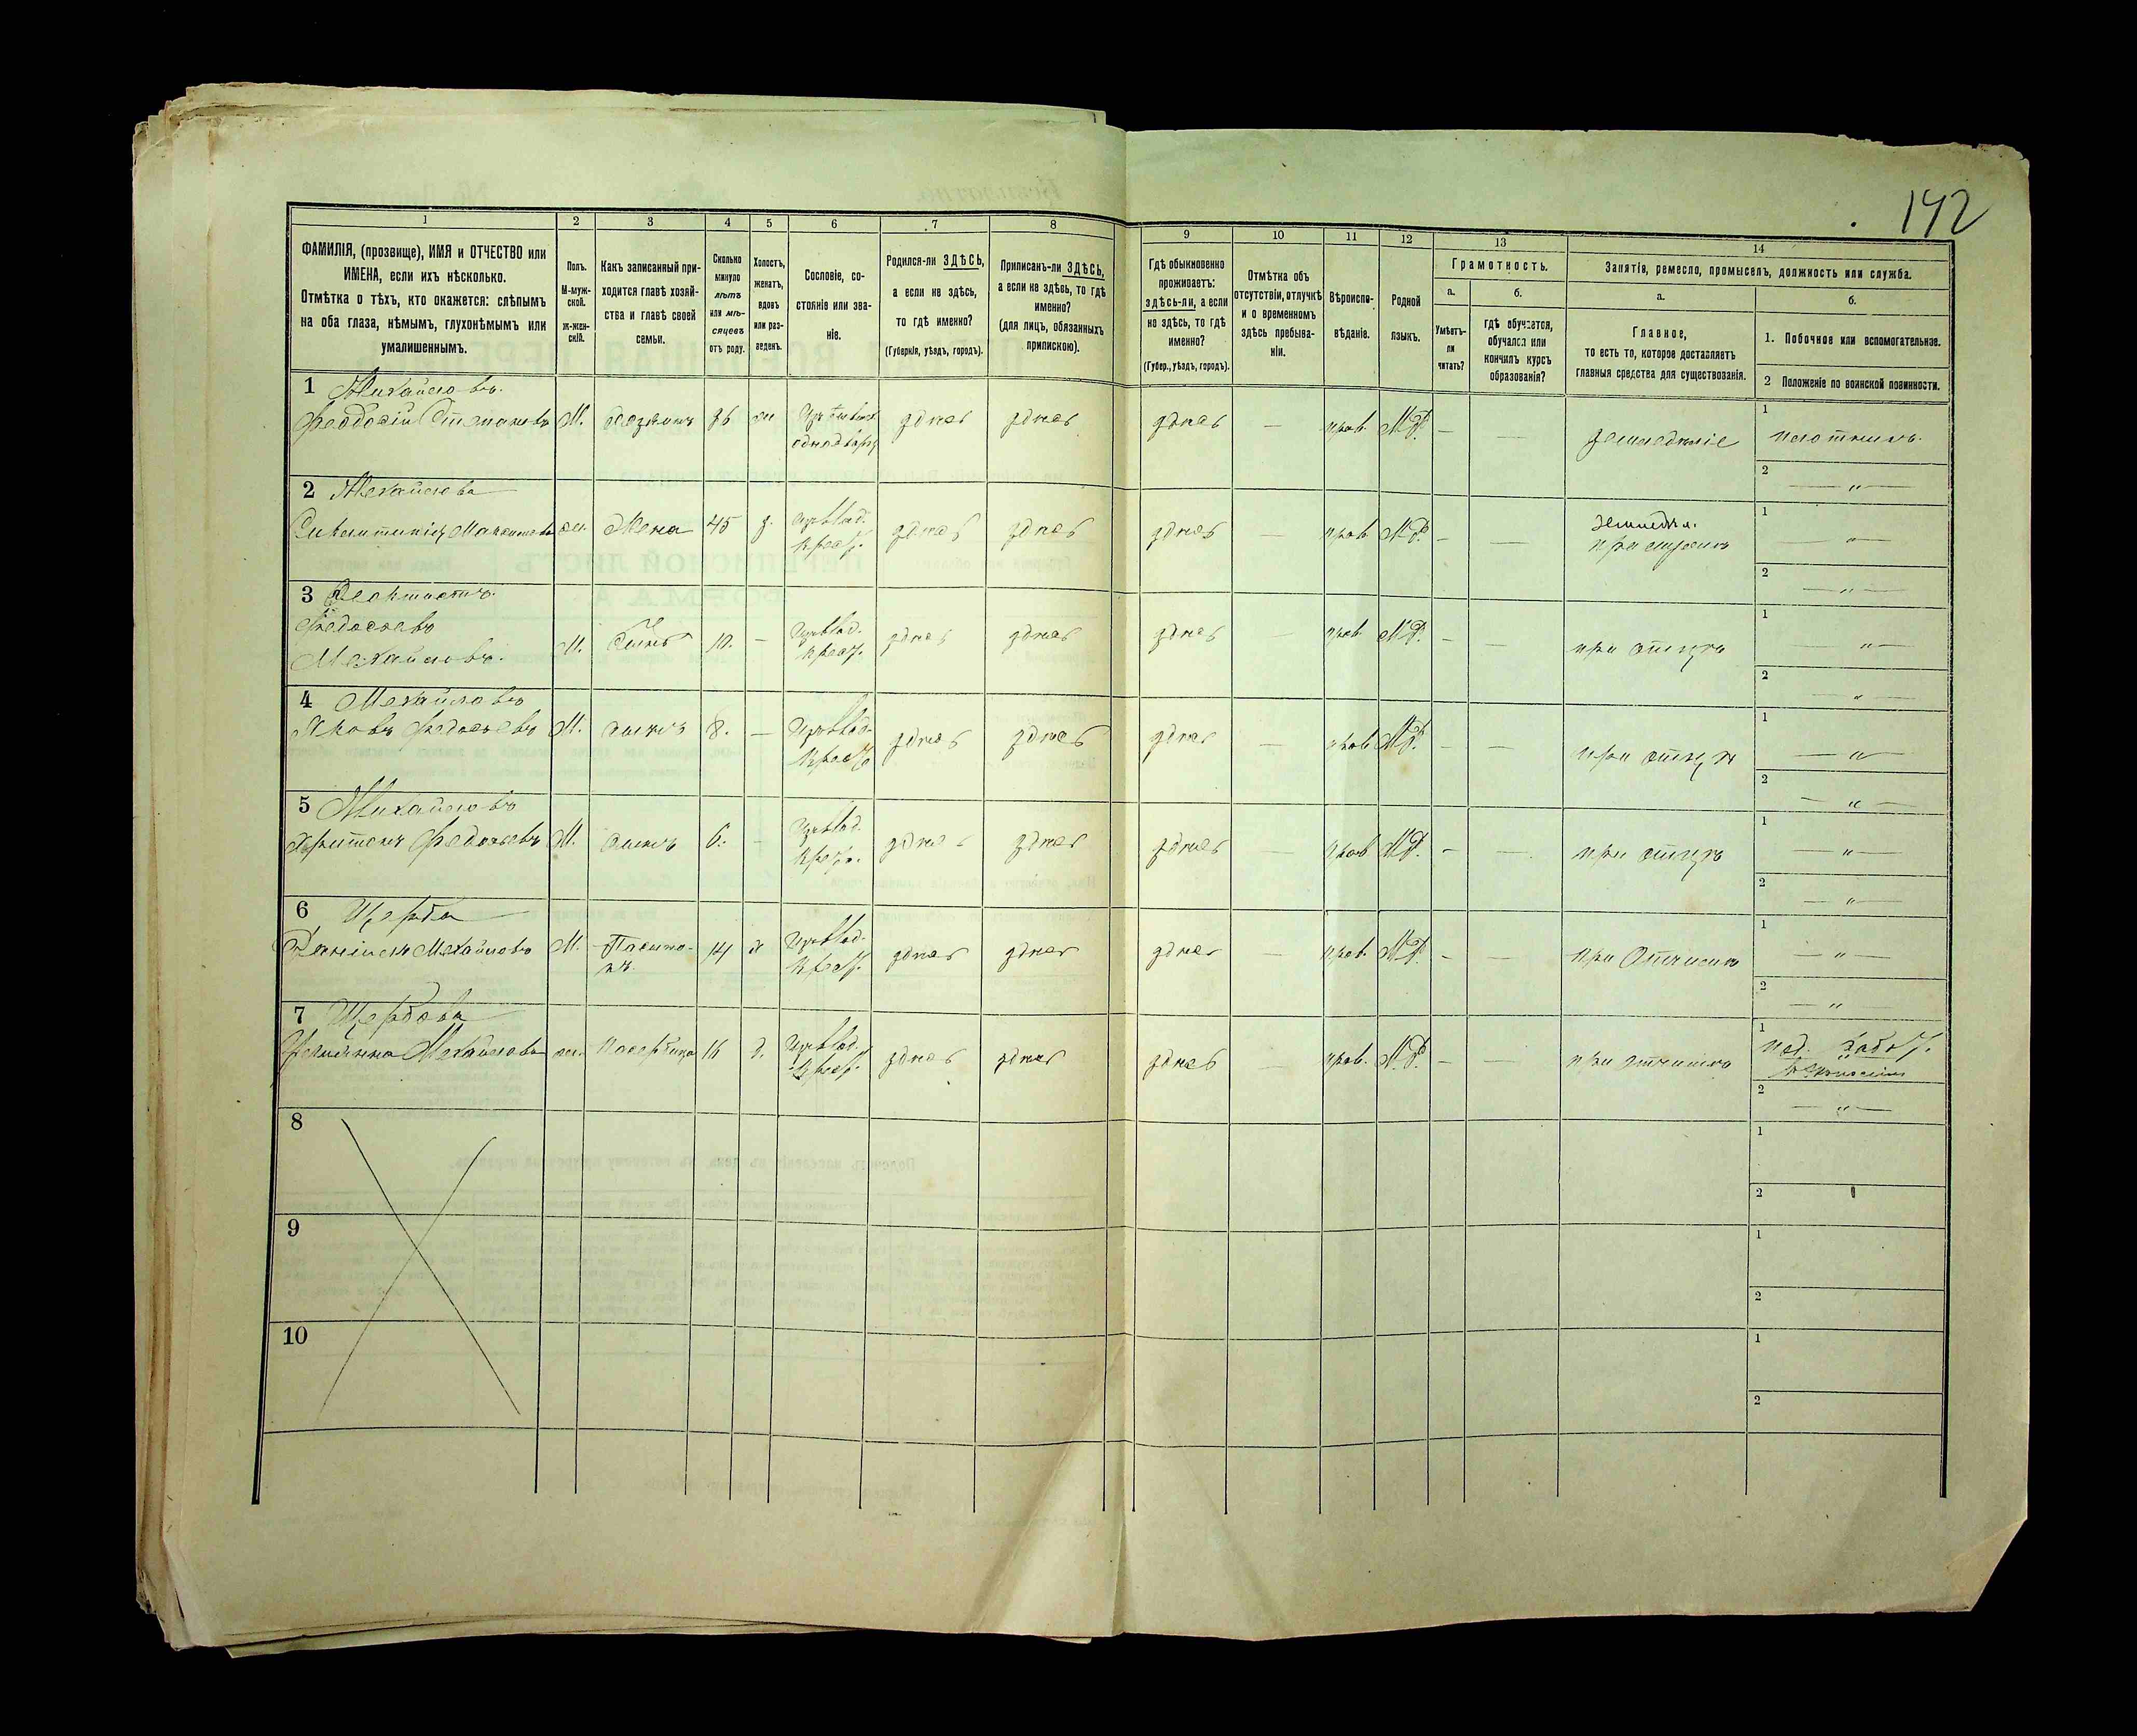 142
1 2 3 4 5 6 7 8 9 10 11 12 13 14
ФАМИЛІЯ, (прозвище), ИМЯ и ОТЧЕСТВО или
ИМЕНА, если ихъ нѣсколько.
Отмѣтка о тѣхъ, кто окажется: слѣпымъ
на оба глаза, нѣмымъ, глухонѣмымъ или
умалишеннымъ.
Полъ.
М-муж-
ской.
ж-жен-
скій.
Какъ записанный при-
ходится главѣ хозяй-
ства и главѣ своей
семьи.
Сколько
минуло
лѣтъ
или мѣ-
сяцевъ
отъ роду.
Холостъ,
женатъ,
вдовъ
или раз-
веденъ.
Сословіе, со-
стояніе или зва-
ніе.
Родился-ли ЗДѢСЬ,
а если не здѣсь,
то гдѣ именно?
(Губернія, уѣздъ, городъ).
Приписанъ-ли ЗДѢСЬ,
а если не здѣсь, то гдѣ
именно?
(для лицъ, обязанныхъ
припискою).
Гдѣ обыкновенно
проживаетъ:
ЗДѢСЬ-ЛИ, а если
не здѣсь, то гдѣ
именно?
(Губер., уѣздъ, городъ).
Отмѣтка объ
отсутствіи, отлучкѣ
и о временномъ
здѣсь пребыва-
ніи.
Вѣроиспо-
вѣданіе.
Родной
языкъ.
Грамотность.
а.
Умѣетъ-
ли
читать?
б.
гдѣ обучается,
обучался или
кончилъ курсъ
образованія?
Занятія, ремесло, промыселъ, должность или служба.
а.
Главное,
то есть то, которое доставляетъ
главныя средства для существованія.
б.
1. Побочное или вспомогательное.
2 Положеніе по воинской повинности.
1 Михайловъ
Феодосій Степановъ М. хозяинъ 36 ж здѣсь здѣсь здѣсь — прав. М.Р. — — земледѣліе
1 плотникъ.
2 — " —
2 Михайлова
жен. Жена 45 з. здѣсь здѣсь здѣсь — прав. М.Р. — —
Крест.
земледѣл.
при мужѣ
1 — " —
2 — " —
3 Феоктистъ
Федосѣевъ
Михайловъ. М. Сынъ 10. — здѣсь здѣсь здѣсь — прав. М.Р. — — при отцѣ
Крест.
1 — " —
2 — " —
4 Михайловъ
Яковъ Федосѣевъ М. сынъ 8. — здѣсь здѣсь здѣсь — прав. М.Р. — — при отцѣ
Крест.
1 — " —
2 — " —
5 Михайловъ
Харитонъ Федосѣевъ М. сынъ 6. — здѣсь здѣсь здѣсь — прав. М.Р. — — при отцѣ
Крест.
1 — " —
2 — " —
6 Щерба
Даніилъ Михайловъ М. Пасыно-
къ. 14 х здѣсь здѣсь здѣсь — прав. М.Р. — — при Отчимѣ
Крест.
1 — " —
2 — " —
7 Щербова
Михайлова жен. Падчерица 16 д. здѣсь здѣсь здѣсь — прав. М.Р. — — при отчимѣ
Крест.
1
2 — " —
8
1
2
9
1
2
10
1
2